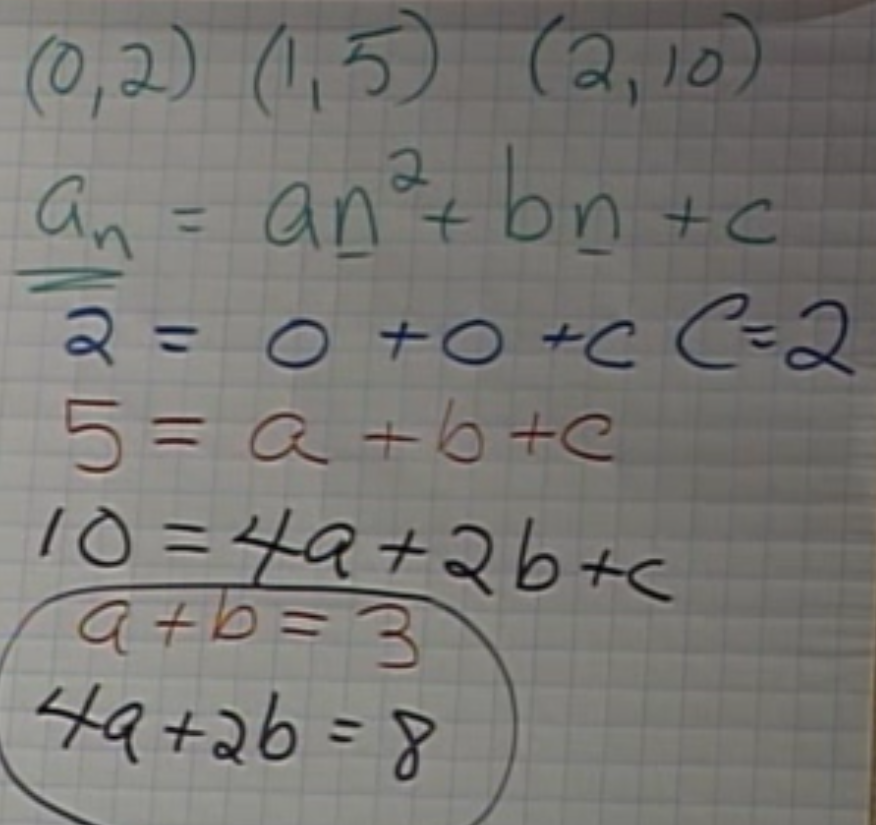 (0,2) (1,5) (2,10)
aₙ = an² + bn + c
2 = 0 + 0 + c C=2
5 = a + b + c
10 = 4a + 2b + c
a + b = 3
4a + 2b = 8